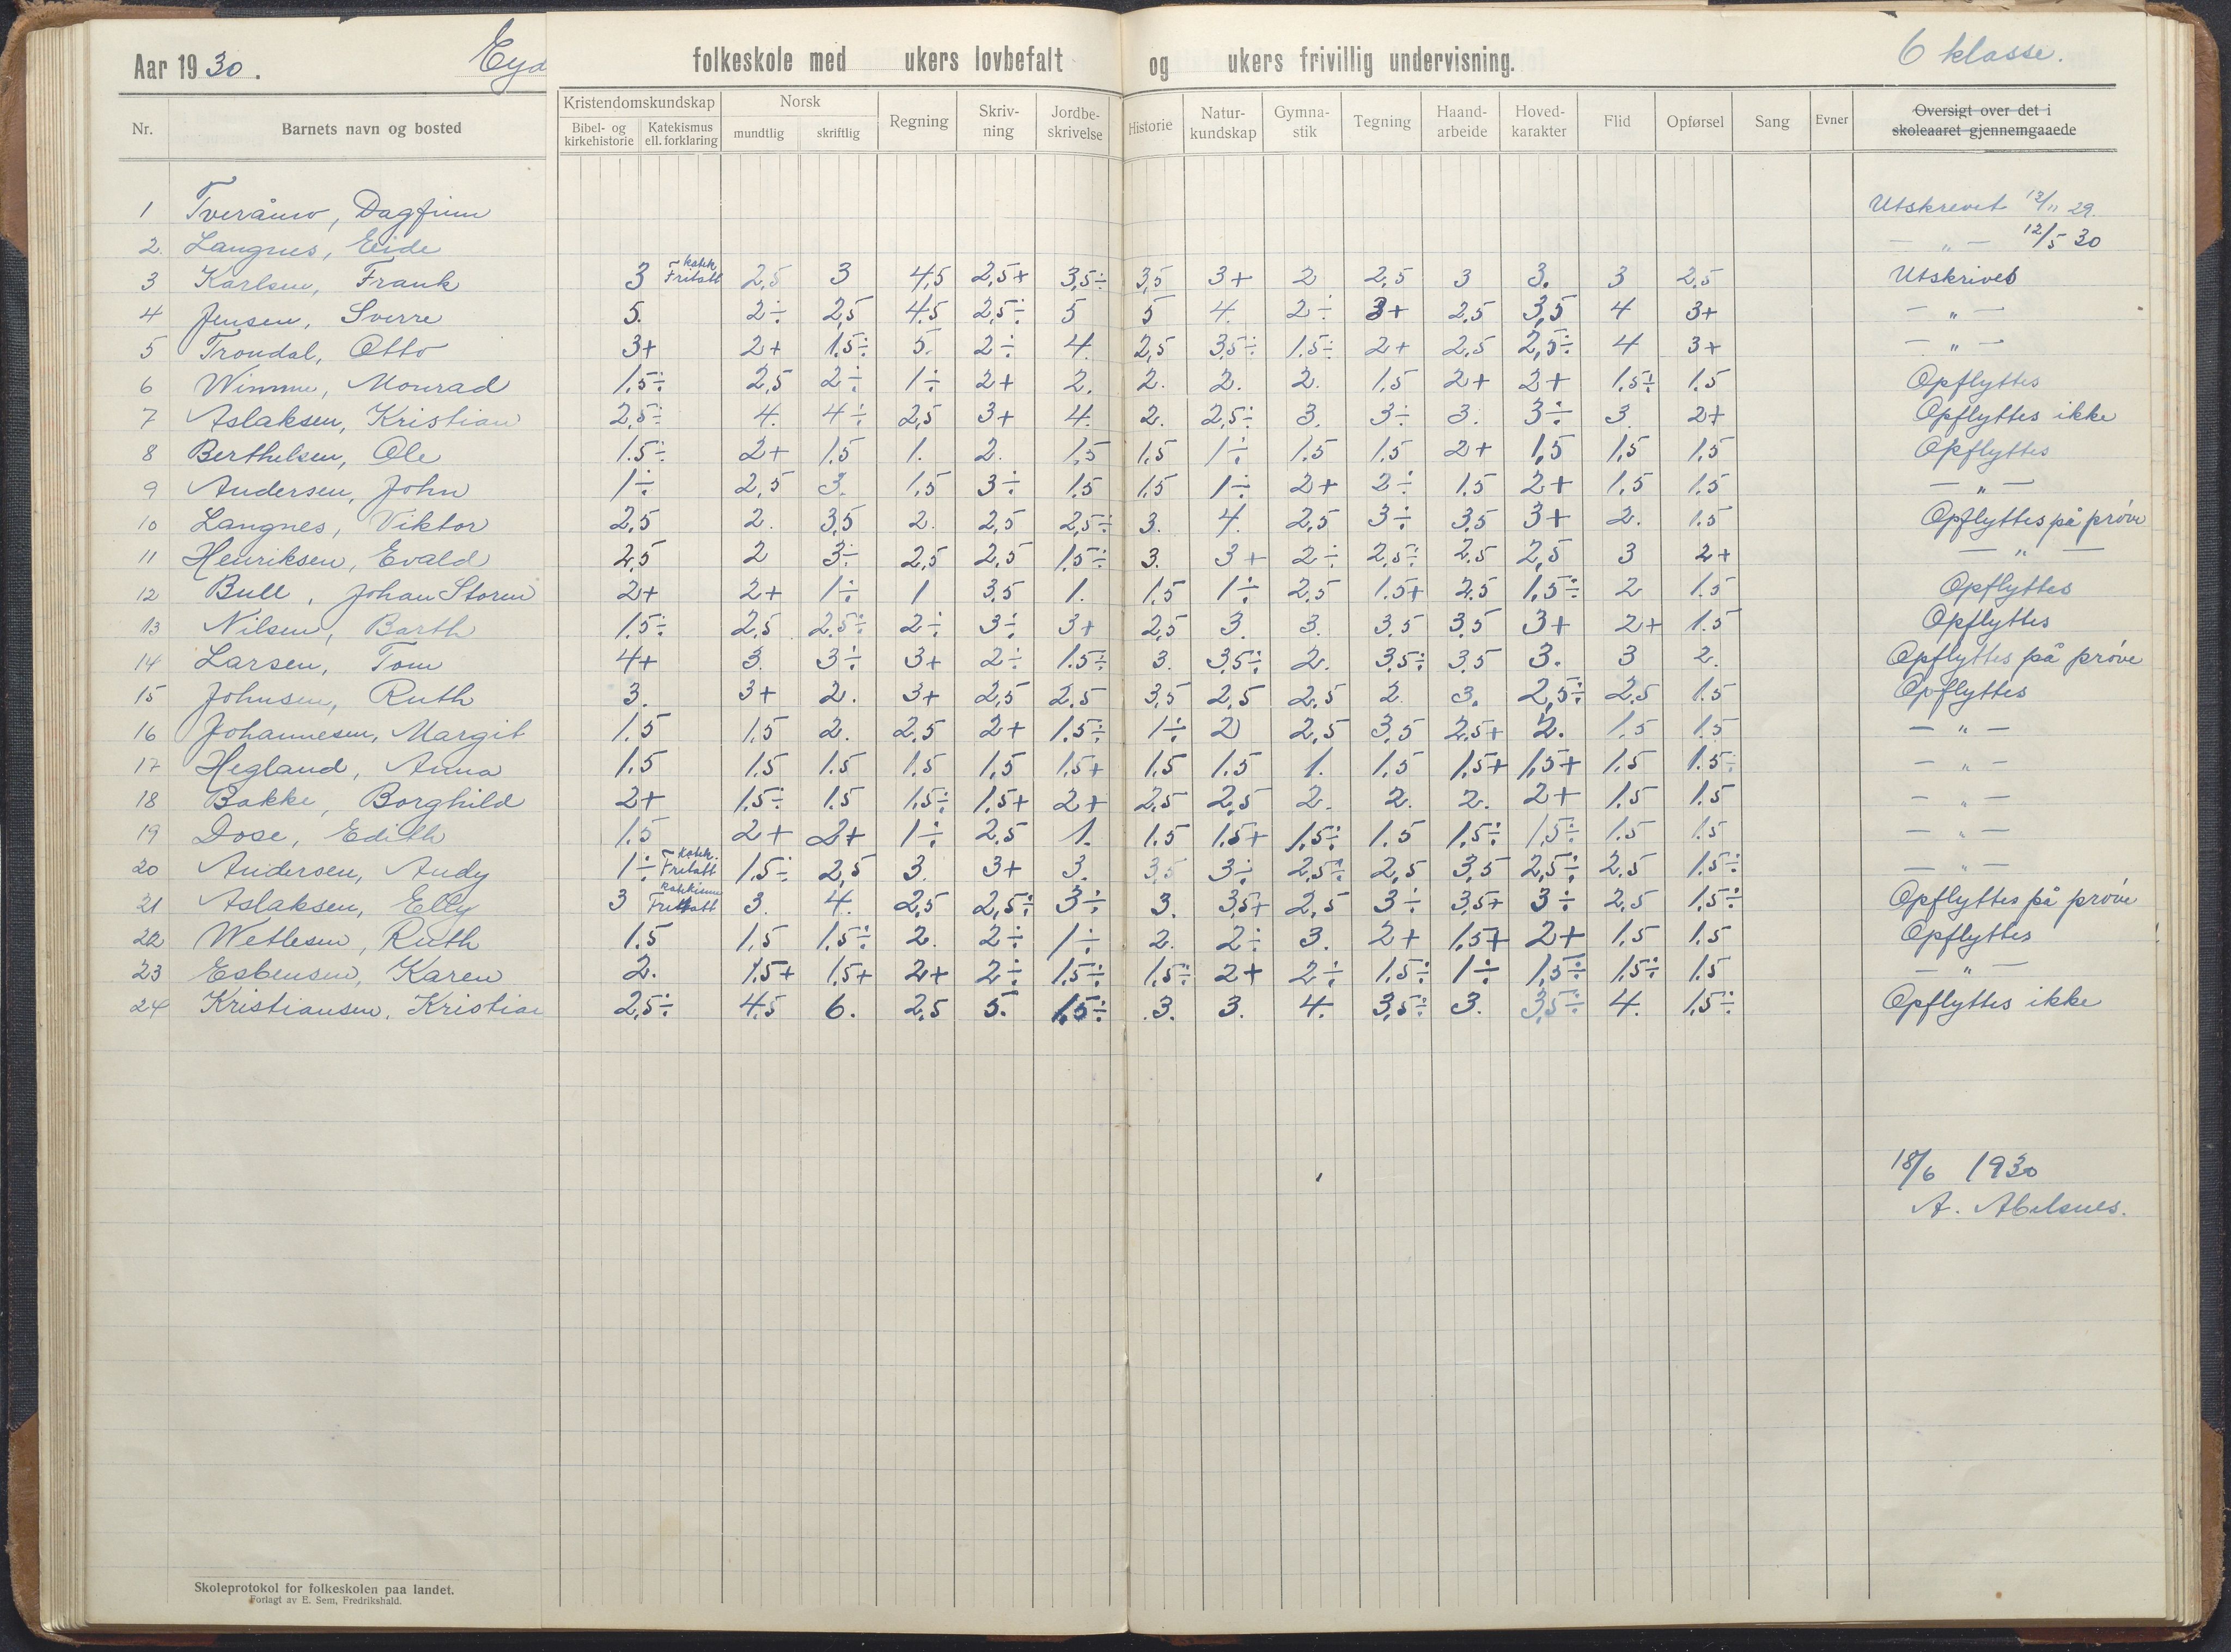 Aar 1930. Eyd folkeskole med ukers lovbefalt og ukers frivillig undervisning. 6 klasse.
Nr. Barnets navn og bosted Kristendomskundskap Norsk Regning Skriv-ning Jordbe-skrivelse Historie Natur-kundskap Gymna-stik Tegning Haand-arbeide Hoved-karakter Flid Opførsel Sang Evner Oversigt over det i skoleaaret gjennemgaaede
Bibel- og kirkehistorie Katekismus ell. forklaring mundtlig skriftlig
1 Tveråmo, Dagfinn Utskrevet 12/11 29.
2. Langnes, Eide — „ — 12/5 30
3 Karlsen, Frank 3 katek. Fritatt 2,5 3 4,5 2,5+ 3,5÷ 3,5 3+ 2 2,5 3 3. 3 2,5 Utskrives
4 Jensen, Sverre 5. 2÷ 2,5 4,5 2,5÷ 5 5 4. 2÷ 3+ 2,5 3,5 4 3+ — „ —
5 Trondal, Otto 3+ 2+ 1,5÷ 5. 2÷ 4. 2,5 3,5÷ 1,5÷ 2+ 2,5 2,5÷ 4 3+ — „ —
6 Wimme, Monrad 1,5÷ 2,5 2÷ 1÷ 2+ 2. 2. 2. 2. 1,5 2+ 2+ 1,5÷ 1,5 Opflyttes
7 Aslaksen, Kristian 2,5÷ 4. 4÷ 2,5 3+ 4. 2. 2,5÷ 3. 3÷ 3. 3÷ 3. 2+ Opflyttes ikke
8 Berthelsen, Ole 1,5÷ 2+ 1,5 1. 2. 1,5 1,5 1÷ 1,5 1,5 2+ 1,5 1,5 1,5 Opflyttes
9 Andersen, John 1÷ 2,5 3. 1,5 3÷ 1,5 1,5 1÷ 2+ 2÷ 1,5 2+ 1,5 1,5 — „ —
10 Langnes, Viktor 2,5 2. 3,5 2. 2,5 2,5÷ 3. 4. 2,5 3÷ 3,5 3+ 2. 1,5 Opflyttes på prøve
11 Henriksen, Evald 2,5 2 3÷ 2,5 2,5 1,5÷ 3. 3+ 2÷ 2,5÷ 2,5 2,5 3 2+ — „ —
12 Bull, Johan Storm 2+ 2+ 1÷ 1 3,5 1. 1,5 1÷ 2,5 1,5+ 2,5 1,5÷ 2 1,5 Opflyttes
13 Nilsen, Barth 1,5÷ 2,5 2,5÷ 2÷ 3÷ 3+ 2,5 3. 3. 3,5 3,5 3+ 2+ 1,5 Opflyttes
14 Larsen, Tom 4+ 3. 3÷ 3+ 2÷ 1,5÷ 3. 3,5÷ 2. 3,5÷ 3,5 3. 3 2. Opflyttes på prøve
15 Johnsen, Ruth 3. 3+ 2. 3+ 2,5 2,5 3,5 2,5 2,5 2. 3. 2,5÷ 2,5 1,5 Opflyttes
16 Johannesen, Margit 1,5 1,5 2. 2,5 2+ 1,5÷ 1÷ 2 2,5 3,5 2,5+ 2. 1,5 1,5 — „ —
17 Hegland, Anna 1,5 1,5 1,5 1,5 1,5 1,5+ 1,5 1,5 1. 1,5 1,5+ 1,5+ 1,5 1,5÷ — „ —
18 Bakke, Borghild 2+ 1,5÷ 1,5 1,5÷ 1,5+ 2+ 2,5 2,5 2. 2. 2. 2+ 1,5 1,5 — „ —
19 Dose, Edith 1,5 2+ 2+ 1÷ 2,5 1. 1,5 1,5+ 1,5÷ 1,5 1,5÷ 1,5÷ 1,5 1,5 — „ —
20 Andersen, Andy 1÷ katek. Fritatt 1,5÷ 2,5 3. 3+ 3. 3,5 3÷ 2,5÷ 2,5 3,5 2,5÷ 2,5 1,5÷ — „ —
21 Aslaksen, Elly 3 Fritatt 3. 4. 2,5 2,5÷ 3÷ 3. 3,5+ 2,5 3÷ 3,5+ 3÷ 2,5 1,5÷ Opflyttes på prøve
22 Wetlesen, Ruth 1,5 1,5 1,5÷ 2. 2÷ 1÷ 2. 2÷ 3. 2+ 1,5+ 2+ 1,5 1,5 Opflyttes
23 Esbensen, Karen 2. 1,5+ 1,5+ 2+ 2÷ 1,5÷ 1,5÷ 2+ 2÷ 1,5÷ 1÷ 1,5÷ 1,5÷ 1,5 — „ —
24 Kristiansen, Kristian 2,5÷ 4,5 6. 2,5 5. 1,5÷ 3. 3. 4. 3,5÷ 3. 3,5÷ 4. 1,5÷ Opflyttes ikke
18/6 1930
A. Abelsnes.
Skoleprotokol for folkeskolen paa landet.
Forlagt av E. Sem, Fredrikshald.